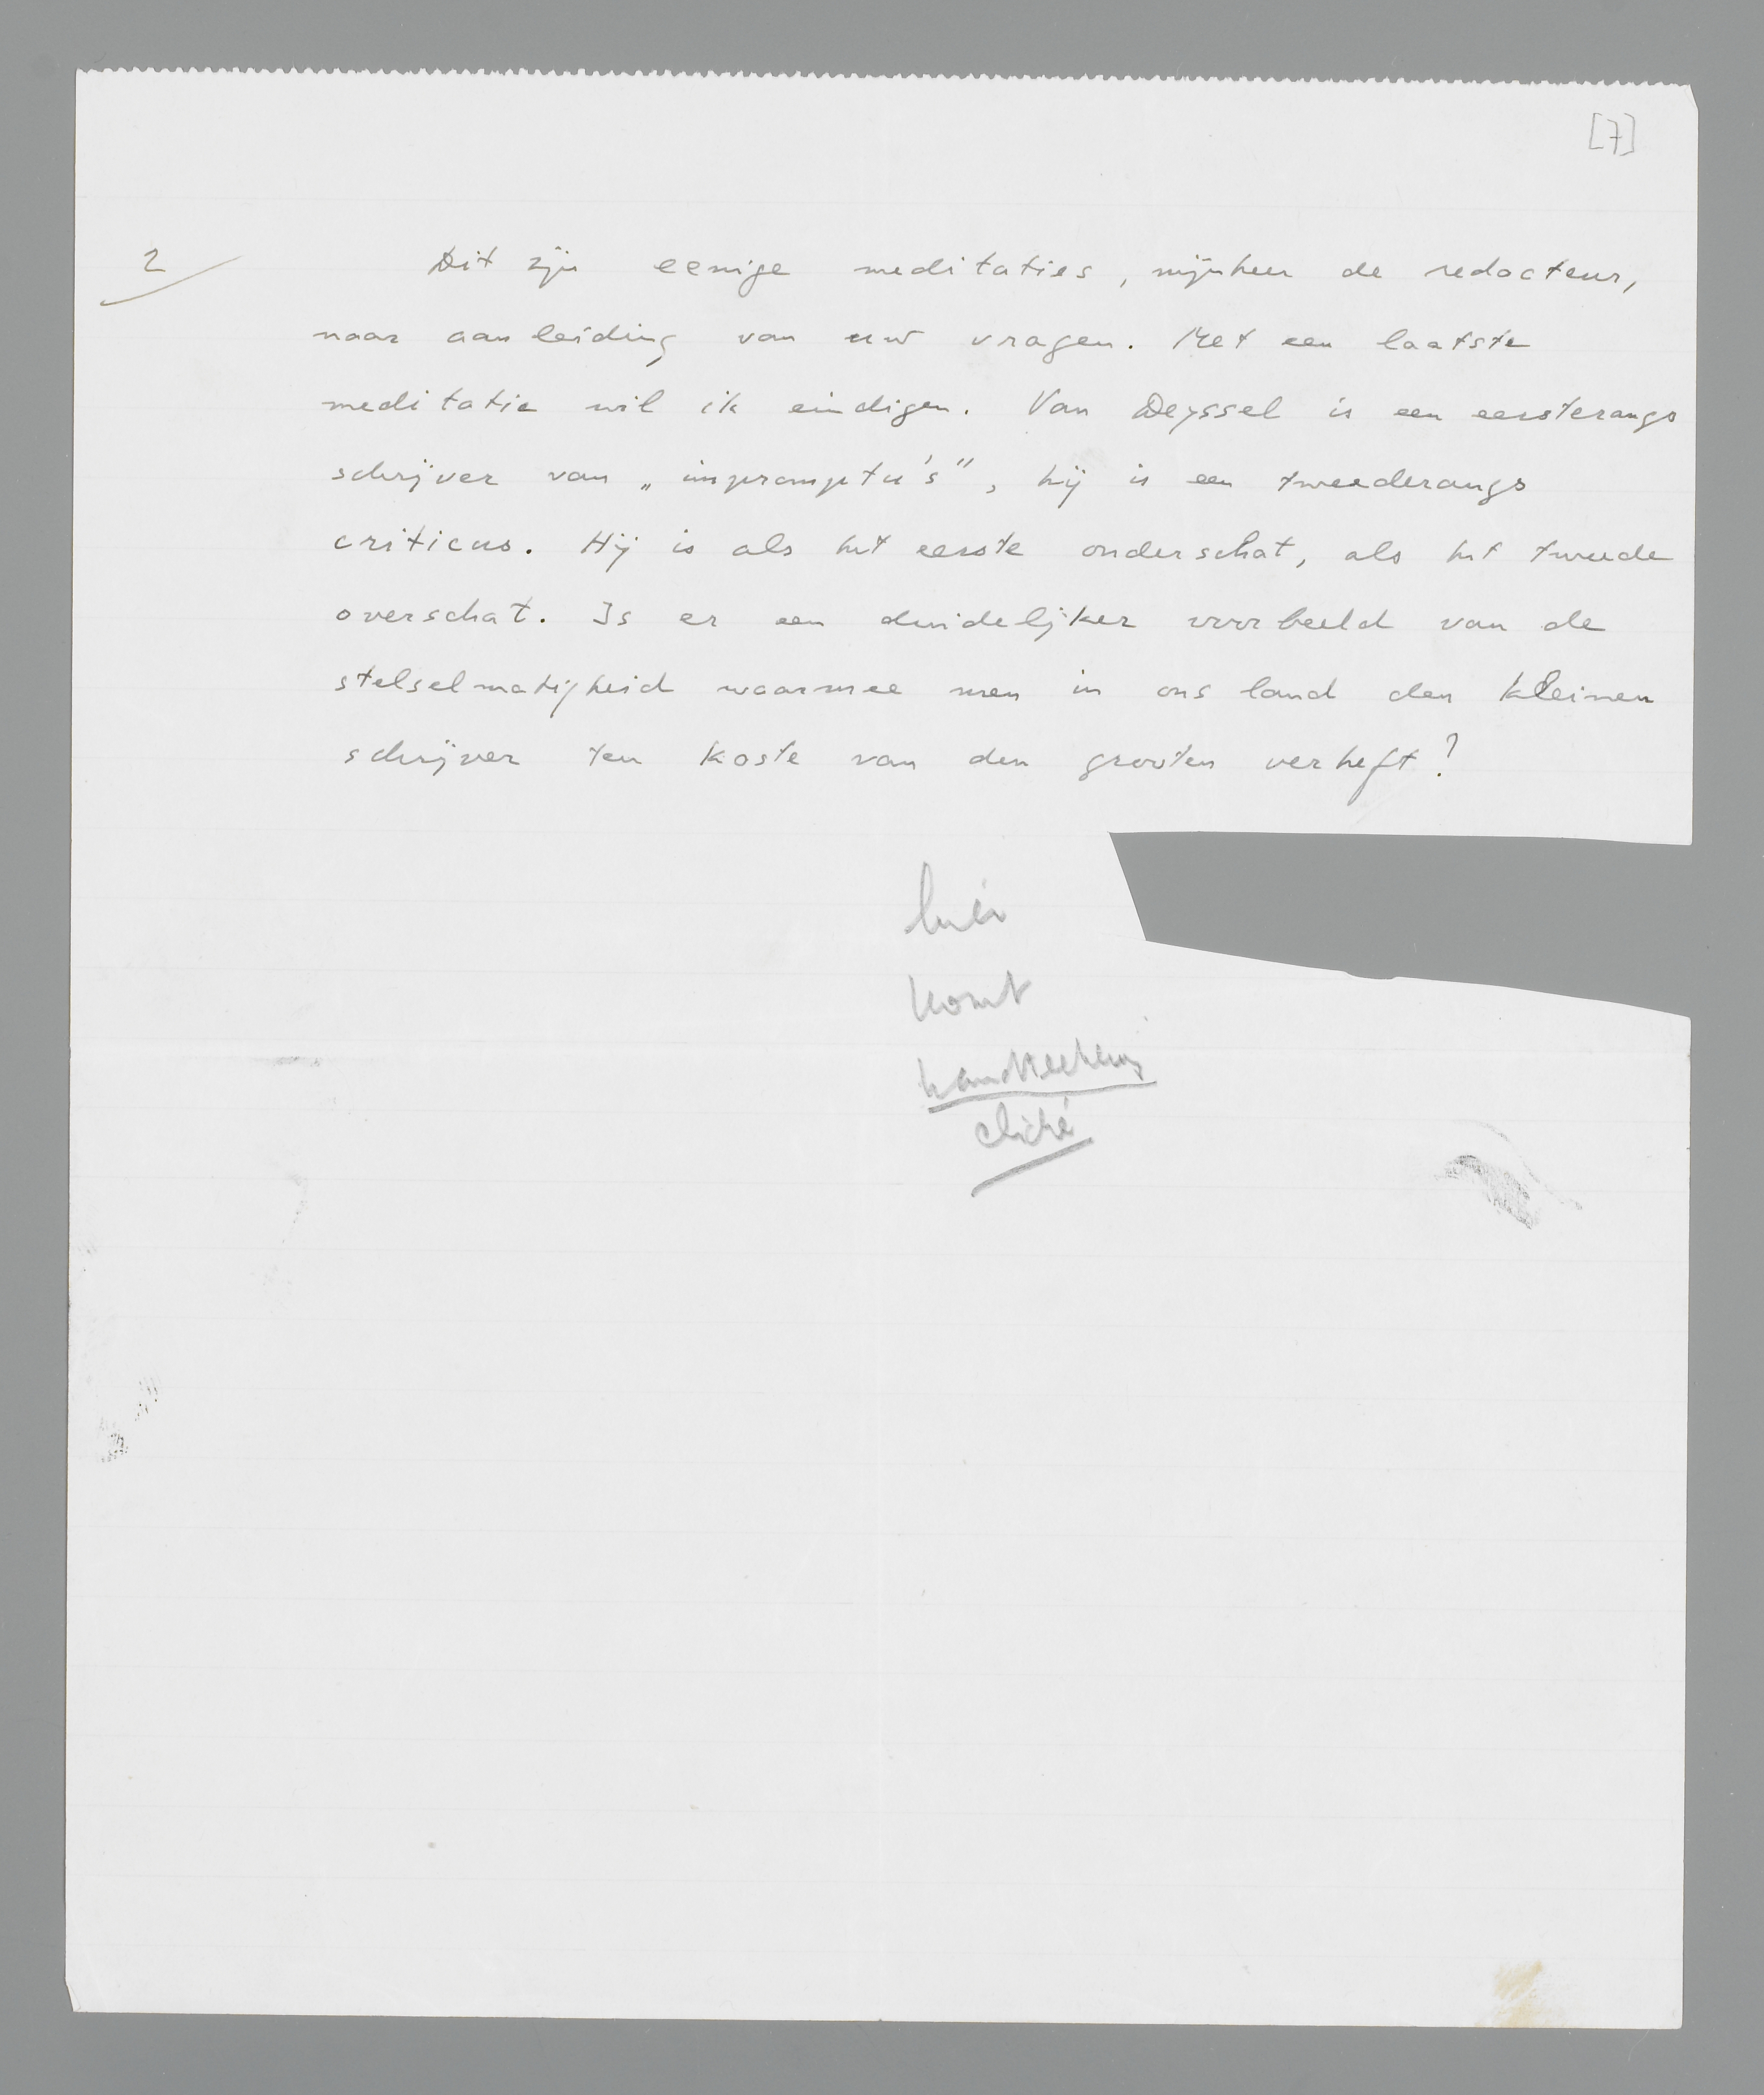 [7]
2
Dit zijn eenige meditaties, mijnheer de redacteur,
naar aanleiding van uw vragen. Met een laatste
meditatie wil ik eindigen. Van Deyssel is een eersterangs
schrijver van „impromptu's”, hij is een tweederangs
criticus. Hij is als het eerste onderschat, als het tweede
overschat. Is er een duidelijker voorbeeld van de
stelselmatigheid waarmee men in ons land den kleinen
schrijver ten koste van den grooten verheft?
hier
komt
handteekening
cliché